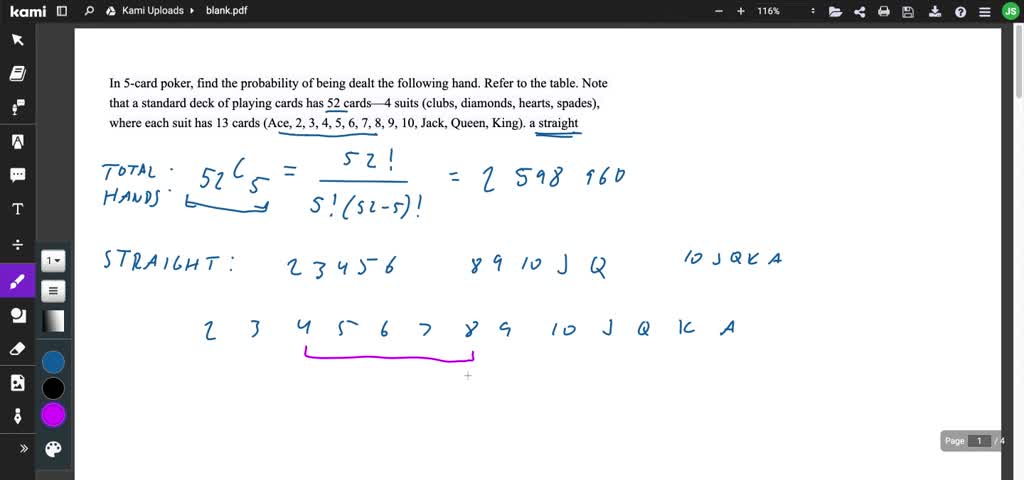 kami Kami Uploads blank.pdf 116% JS
In 5-card poker, find the probability of being dealt the following hand. Refer to the table. Note
that a standard deck of playing cards has 52 cards—4 suits (clubs, diamonds, hearts, spades),
where each suit has 13 cards (Ace, 2, 3, 4, 5, 6, 7, 8, 9, 10, Jack, Queen, King). a straight
TOTAL HANDS: 52C5 = 52! / 5!(52-5)! = 2 598 960
STRAIGHT: 2 3 4 5 6 8 9 10 J Q 10 J Q K A
1
2 3 4 5 6 7 8 9 10 J Q K A
Page 1 / 4